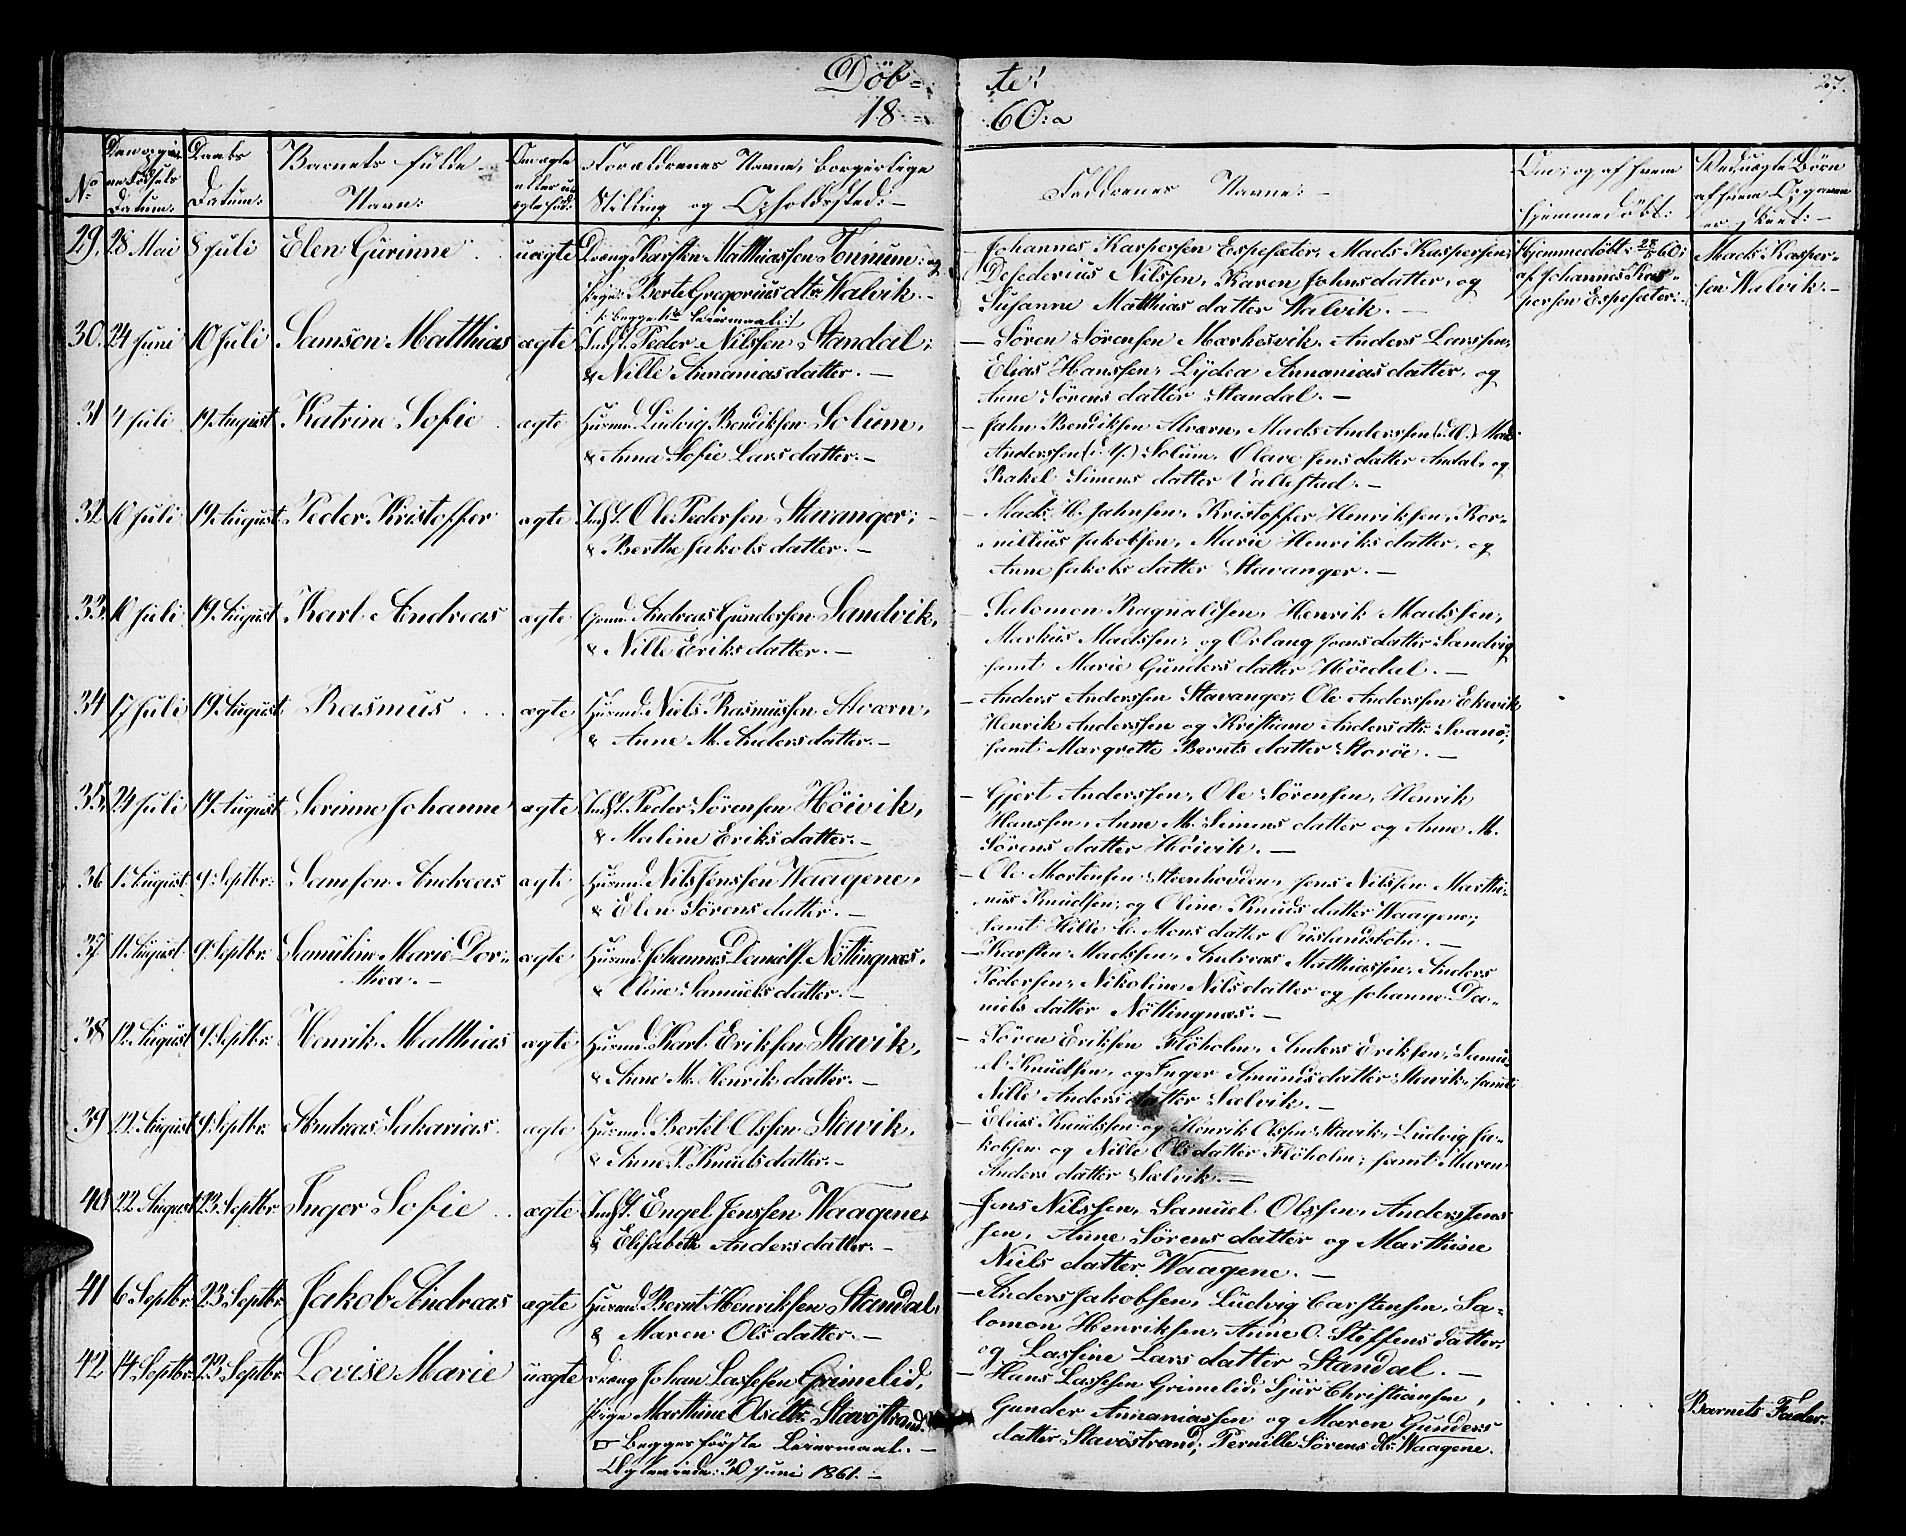 Döb=
te!
27.
18
60:
No
Den opgivne Fødsels Datum:
Daabs Datum:
Barnets fulde Navn:
Om ægte eller uægte fød:
Forældrenes Navne, borgerlige Stilling og Opholdssted:—
Faddrenes Navne:—
Om, og af hvem hjemmedøbt:
Ved uægte Børn af hvem Opgaven er skeet:—
29. 28 Mai 8 Juli Elen Gurinne uægte Dreng Karsten Matthiassen Tonnum: og
Pige: Berte Gregorius dtr: Walvik.—
/: begge 1ste Leiermaal:/
Johannes Kaspersen Espesæter, Mads Kaspersen,
Desederius Nilssen, Karen Johnsdatter, og
Susanne Matthias datter Walvik.—
Hjemmedøbt: 28/5 60:
af Johannes Kaspersen Espesæter:—
Mads Kaspersen Walvik.—
30. 24 Juni 10 Juli Samson Matthias ægte Indst. Peder Nilssen Standal,
& Nille Annaniasdatter.—
— Sören Sörensen Markesvik, Anders Larssen,
Elias Hanssen, Lydea Annaniasdatter, og
Anne Sörens datter Standal.—
31 4 Juli 19 August Katrine Sofie ægte Husmd. Ludvig Bendiksen Solum,
& Anna Sofie Larsdatter.—
— Jahn Bendiksen Alværn, Mads Anderssen Mads
Anderssen Solum, Olave Jensdatter Andal, og
Rakel Simens datter Vallestad.—
32 10 Juli 19 August Peder Kristoffer ægte Indst. Ole Pedersen Stavanger;
& Berthe Jakobsdatter.—
— Mads H. Jahnsen, Kristoffer Henriksen, Kornelius Jakobsen, Marie Henriksdatter, og
Anne Jakobs datter Stavanger.—
33. 10 Juli 19 August Karl Andreas ægte Gmd. Andreas Gundersen Sandvik,
& Nille Eriksdatter.—
— Salomon Ragnaldsen, Henrik Madssen,
Markus Madssen, og Orlaug Jensdatter Sandvig
samt Marie Gunders datter Höidal.—
34 17 Juli 19 August Rasmus ægte Husmd. Niels Rasmussen Alværn,
& Anne M. Andersdatter.—
— Anders Anderssen Stavanger, Ole Anderssen Ekevik,
Henrik Anderssen og Kristiane Anders dtr: Svanö,
samt Margrette Bernts datter Storöe.—
35. 24 Juli 19 August Serinne Johanne ægte Indst. Peder Sörensen Höivik,
& Maline Eriksdatter.—
— Gjert Anderssen, Ole Sörensen, Henrik
Hanssen, Anne M. Simens datter og Anne M.
Sörens datter Höivik.—
36 1. August 9. Septbr: Samson Andreas ægte Husmd. Nils Jenssen Waagene,
& Elen Sörens datter.—
— Ole Mortensen Steenhovden, Jens Nilssen Marthinus Knudsen, og Oline Knuds datter Waagene;
samt Hille C. Mons datter Ouslandsbotn.—
37. 11. August 9. Septbr: Samuline Marie Dorthea.— ægte Husmd. Johannes Danielss. Nöttingnæs,
& Oline Samuelsdatter.—
— Karsten Madssen, Andreas Matthiassen, Anders
Pedersen, Nikoline Nilsdatter og Johanne Daniels datter Nöttingnæs.—
38 12. August 9. Septbr: Henrik Matthias ægte Husmd. Karl Eriksen Stavik,
& Anne M. Henriksdatter.—
— Sören Eriksen Flöholm, Anders Eriksen, Samuel Knudsen, og Inger Amundsdatter Stavik, samt
Nille Andersdatter Sælvik.—
39 12. August 9. Septbr: Andreas Sakarias ægte Husmd. Bertel Olssen Stavik,
& Anne P. Knudsdatter.—
— Elias Knudssen og Henrik Olssen Stavik, Ludvig Jakobsen og Nille Olsdatter Flöholm; samt Maren
Anders datter Sælvik.—
40 22. August 23. Septbr. Inger Sofie ægte Indst. Engel Jenssen Waagene,
& Elisabeth Andersdatter.—
— Jens Nilssen, Samuel Olssen, Anders Jenssen, Anne Sörens datter og Marthine
Niels datter Waagene.—
41 6. Septbr. 23. Septbr. Jakob Andreas ægte Husmd. Bernt Henriksen Standal,
& Maren Olsdatter.—
— Anders Jakobsen, Ludvig Carstensen, Salomon Henriksen, Anne O. Steffens datter
og Lassine Lars datter Standal.—
42 14. Septbr. 23. Septbr. Lovise Marie uægte Dreng Johan Lassesen Grimelid,
Pige Marthine Olsdtr. Stavöstrand.
Begges förste Leiermaal.—
Ægteviede: 30 Juni 1861.—
— Hans Lassesen Grimelid, Sjur Christiansen,
Gunder Annaniassen og Maren Gunders
datter Stavöstrand; Pernille Sörens dtr: Waagene.
Barnets Fader.